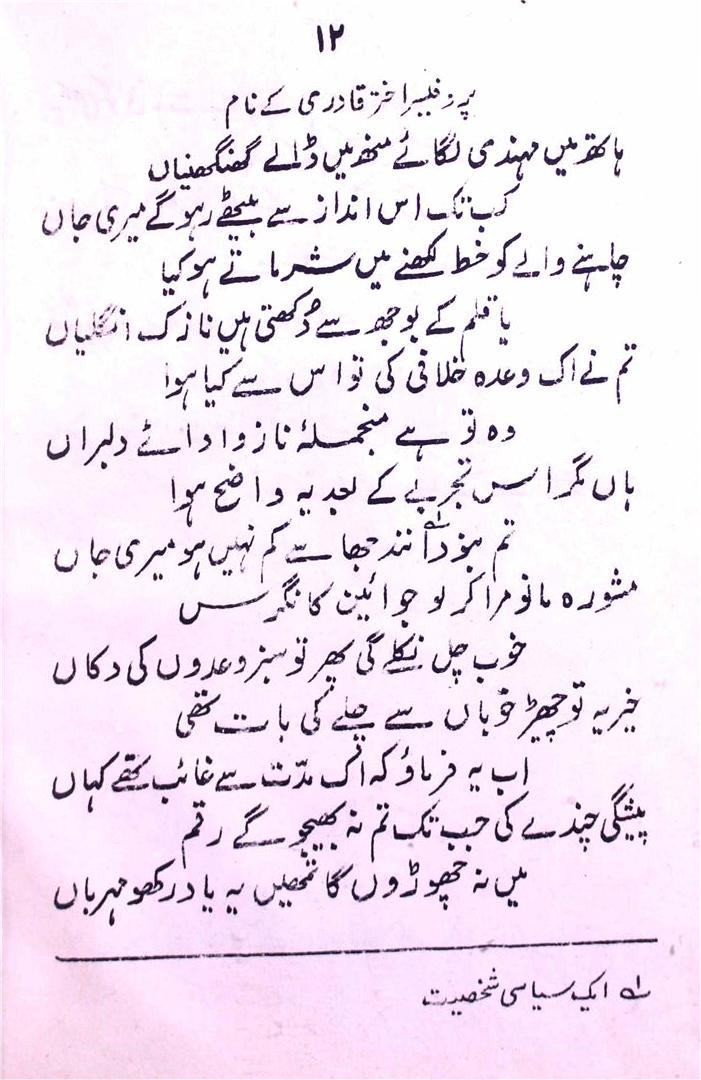 ۱۲
پروفیسر اختر قادری کے نام
ہاتھ میں مہندی لگائے منھ میں ڈالے گھنگھنیاں
کب تک اس انداز سے بیٹھے رہو گے میری جاں
چاہنے والے کو خط لکھنے میں شرماتے ہو کیا
یا قلم کے بوجھ سے دُکھتی ہیں نازک انگلیاں
تم نے اک وعدہ خلافی کی تو اس سے کیا ہوا
وہ تو ہے منجملۂ ناز و ادائے دلبراں
ہاں مگر اس تجربے کے بعد یہ واضح ہوا
تم بنودا نند جھا سے کم نہیں ہو میری جاں
مشورہ مانو مرا کر لو جوائین کانگرس
خوب چل نکلے گی پھر تو سبز وعدوں کی دکاں
خیر یہ تو چھیڑ خوباں سے چلے کی بات تھی
اب یہ فرماؤ کہ اک مدّت سے غائب تھے کہاں
پیشگی چندے کی جب تک تم نہ بھیجو گے رقم
میں نہ چھوڑوں گا تمھیں یہ یاد رکھو مہرباں
؂۱ ایک سیاسی شخصیت